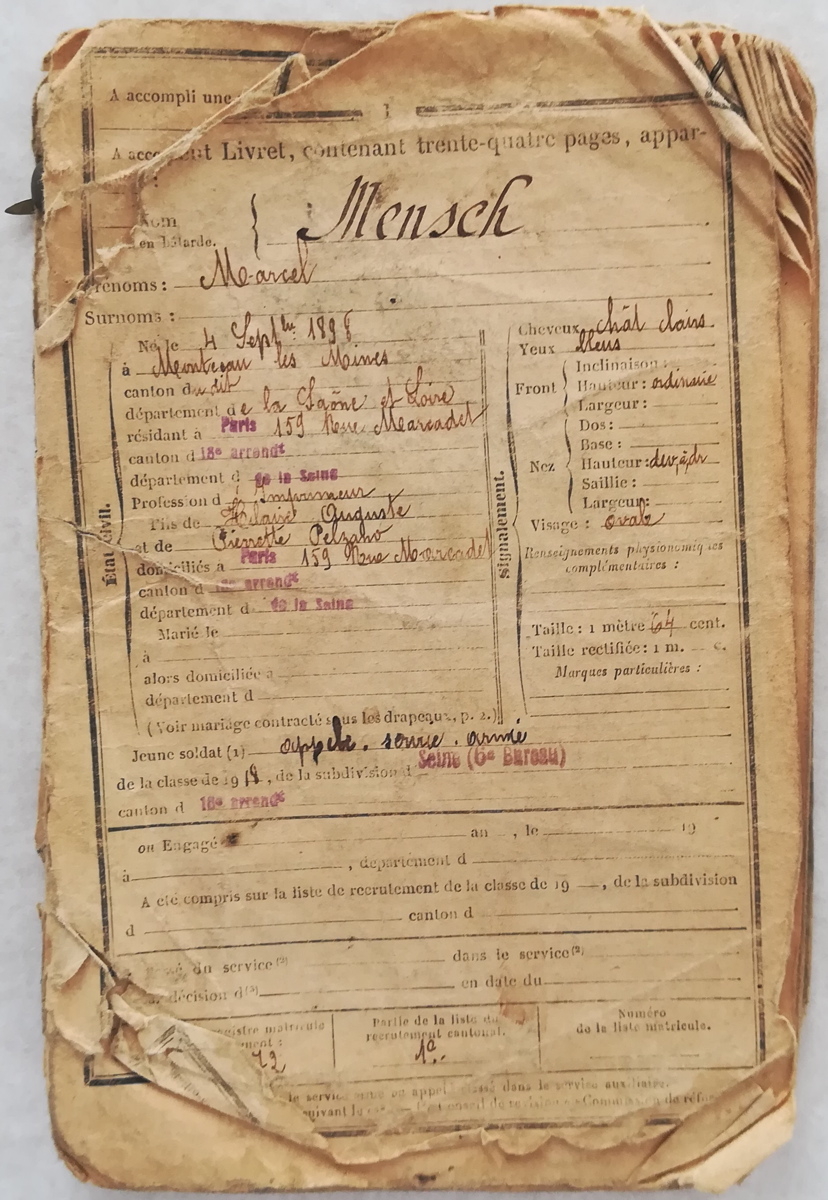 A accompli une
1
A acc
ent Livret, contenant trente-quatre pages, appar-
:
Nom
en bâtarde. Mensch
Prénoms : Marcel
Surnoms :
Né le 4 Septbre 1898
à Montceau les Mines
canton du dit
département de la Saône et Loire
résidant à Paris 159 Rue Marcadet
canton d 18e arrendt
département d de la Seine
Profession d' Imprimeur
Fils de Hilaire Auguste
et de Pierrette Pelzano
domiciliés à Paris 159 Rue Marcadet
canton d 18e arrendt
département d de la Seine
Marié le
à
alors domiciliée à
département d
(Voir mariage contracté sous les drapeaux, p. 2.)
État civil.
Signalement.
Cheveux chât clairs
Yeux bleus
Front
Inclinaison :
Hauteur : ordinaire
Largeur :
Nez
Dos :
Base :
Hauteur :
Saillie :
Largeur :
Visage : ovale
Renseignements physionomiques
complémentaires :
Taille : 1 mètre 64 cent.
Taille rectifiée : 1 m. c.
Marques particulières :
Jeune soldat (1) appelé. service. armé
de la classe de 1918, de la subdivision d Seine (6e Bureau)
canton d 18e arrendt
ou Engagé an , le 19
à , département d
A été compris sur la liste de recrutement de la classe de 19 , de la subdivision
d canton d
du service (2) dans le service (2)
décision d (3) en date du
registre matricule
72
Partie de la liste du
recrutement cantonal.
1e
Numéro
de la liste matricule.
le service dans le service auxiliaire.
suivant le